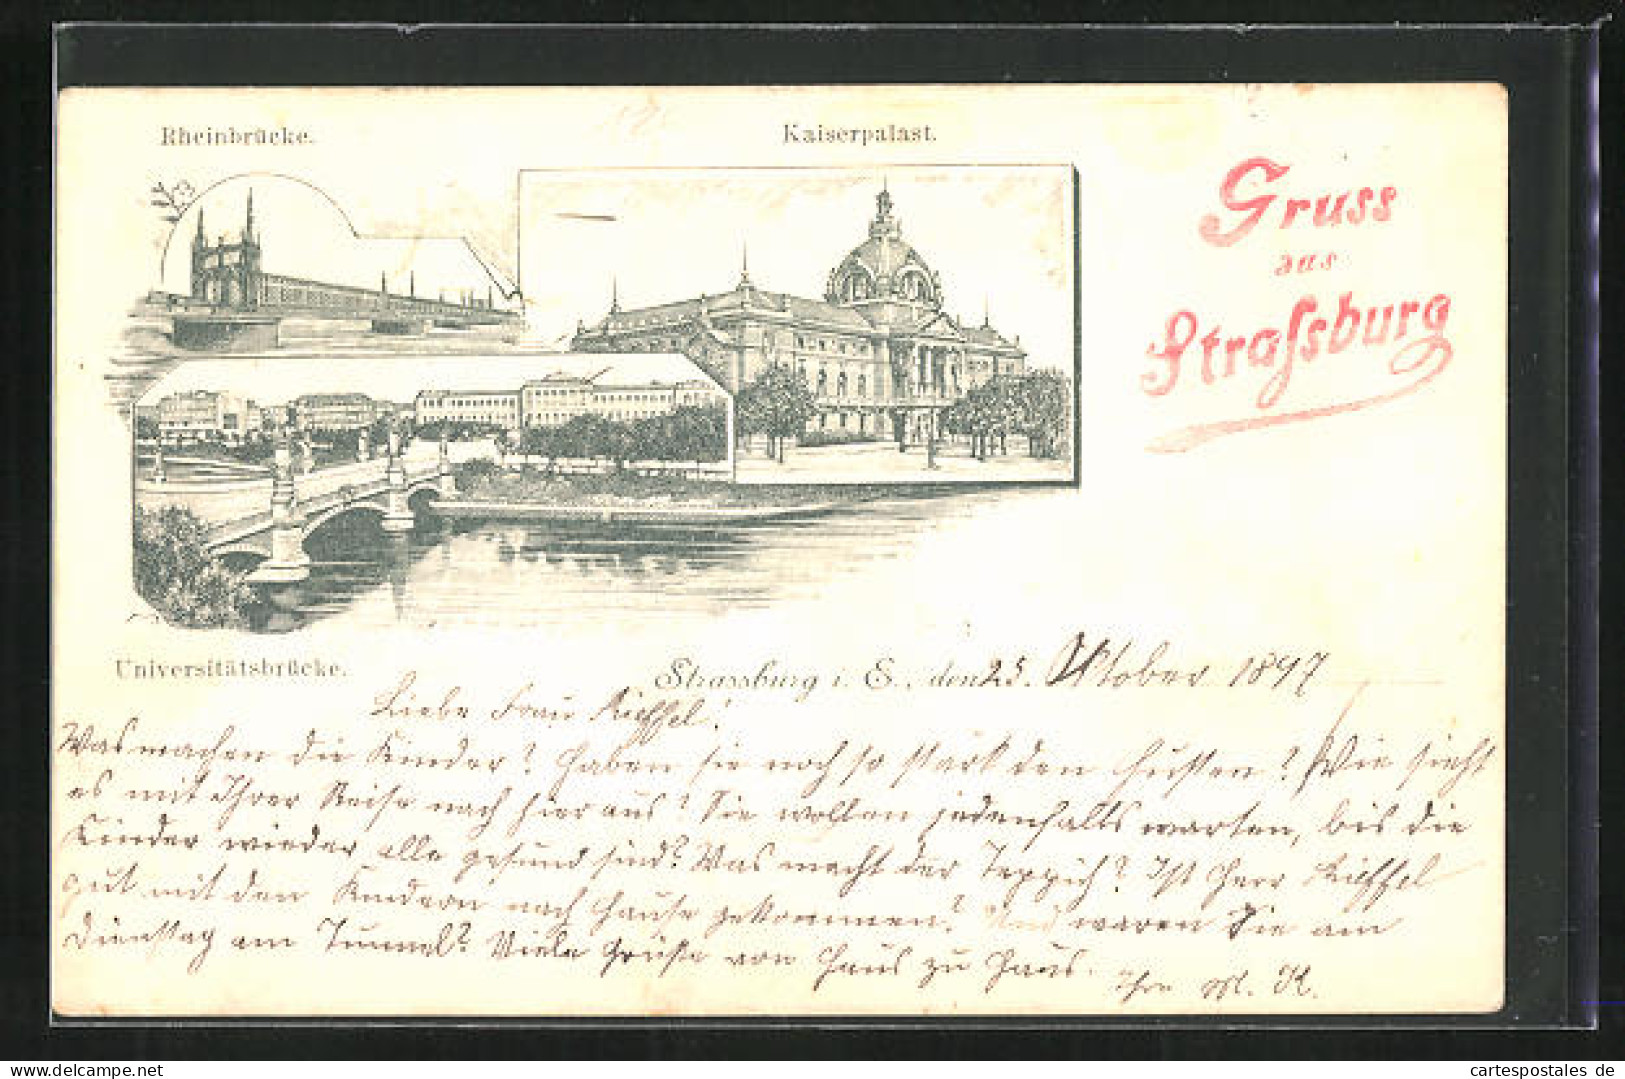 Rheinbrücke.
Kaiserpalast.
Gruss
aus
Strassburg
Universitätsbrücke.
Strassburg i. E., den 25. Oktober 1897
Liebe Frau Kieffel!
Was machen die Kinder? Haben sie noch so stark den Husten? Wie sieht
es mit Ihrer Reise nach hier aus? Sie wollen jedenfalls warten, bis die
Kinder wieder alle gesund sind? Was macht der Teppich? Ist Herr Kieffel
gut mit den Kindern nach Hause gekommen? Und waren Sie am
Dienstag am Tunnel? Viele Grüße von Haus zu Haus.
Ihre M. K.
cartespostales de